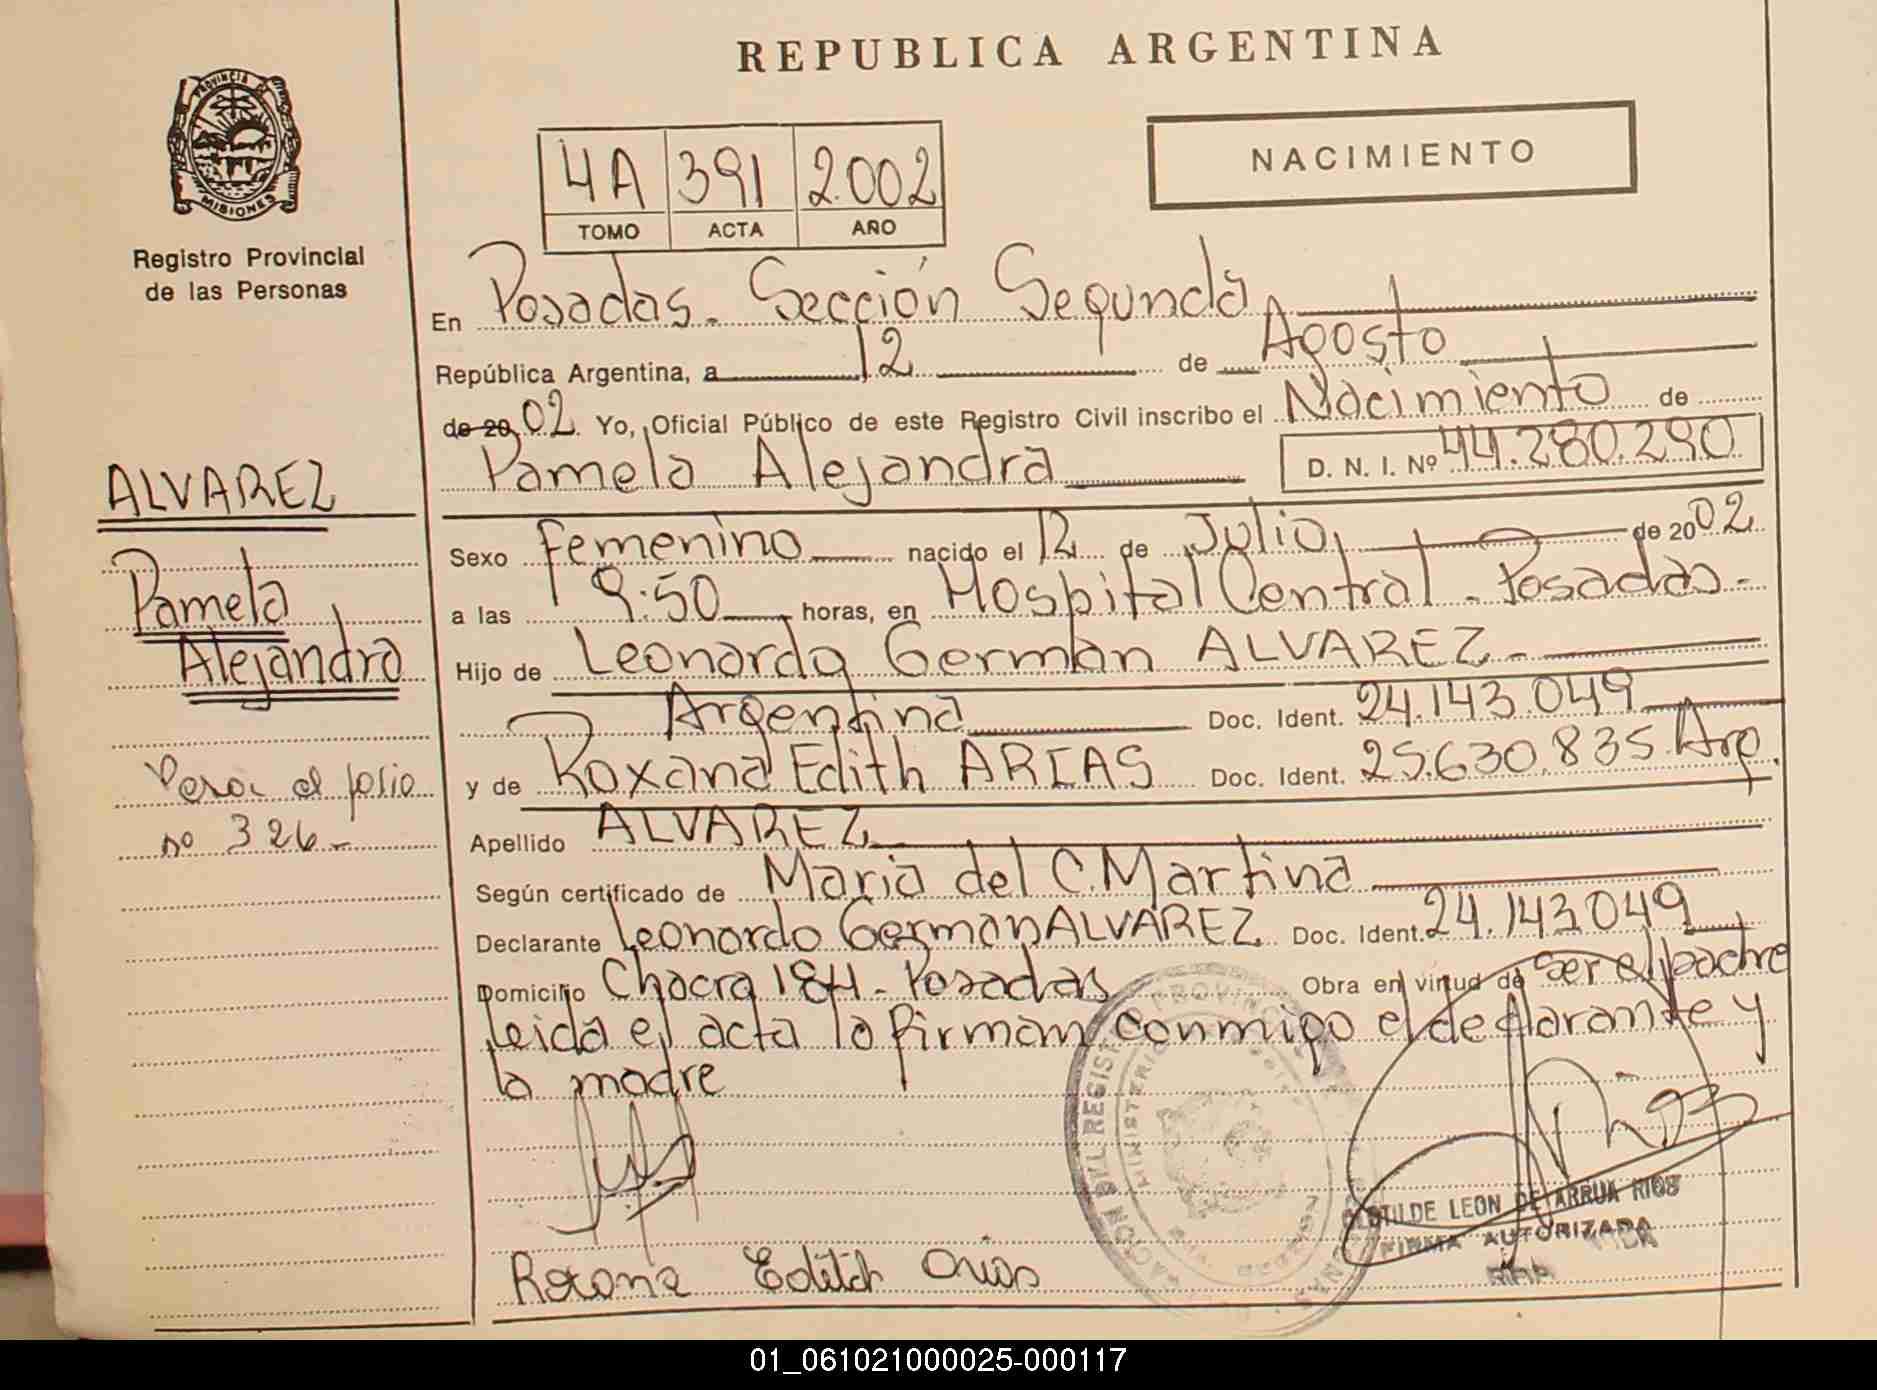 REPUBLICA ARGENTINA
PROVINCIA DE
MISIONES
Registro Provincial
de las Personas
4A 391 2.002
TOMO ACTA AÑO
NACIMIENTO
En Posadas. Sección Segunda
República Argentina, a 12 de Agosto
de 20 02 Yo, Oficial Público de este Registro Civil inscribo el Nacimiento de
Pamela Alejandra D. N. I. Nº 44.280.290
ALVAREZ
Pamela
Alejandra
Sexo Femenino nacido el 12 de Julio de 2002
a las 9:50 horas, en Hospital Central - Posadas -
Hijo de Leonardo German ALVAREZ -
Argentina Doc. Ident. 24.143.049
y de Roxana Edith ARIAS Doc. Ident. 25.630.835 Arg.
al folio
nº 326 -
Apellido ALVAREZ
Según certificado de Maria del C. Martina
Declarante Leonardo German ALVAREZ Doc. Ident. 24.143.049
Domicilio Chacra 184 - Posadas Obra en virtud de ser el padre
leida el acta la firman conmigo el declarante y
la madre
Roxana Editch Arias
MINISTERIO
CLOTILDE LEON DE ARRUA RIOS
FIRMA AUTORIZADA
01_061021000025-000117